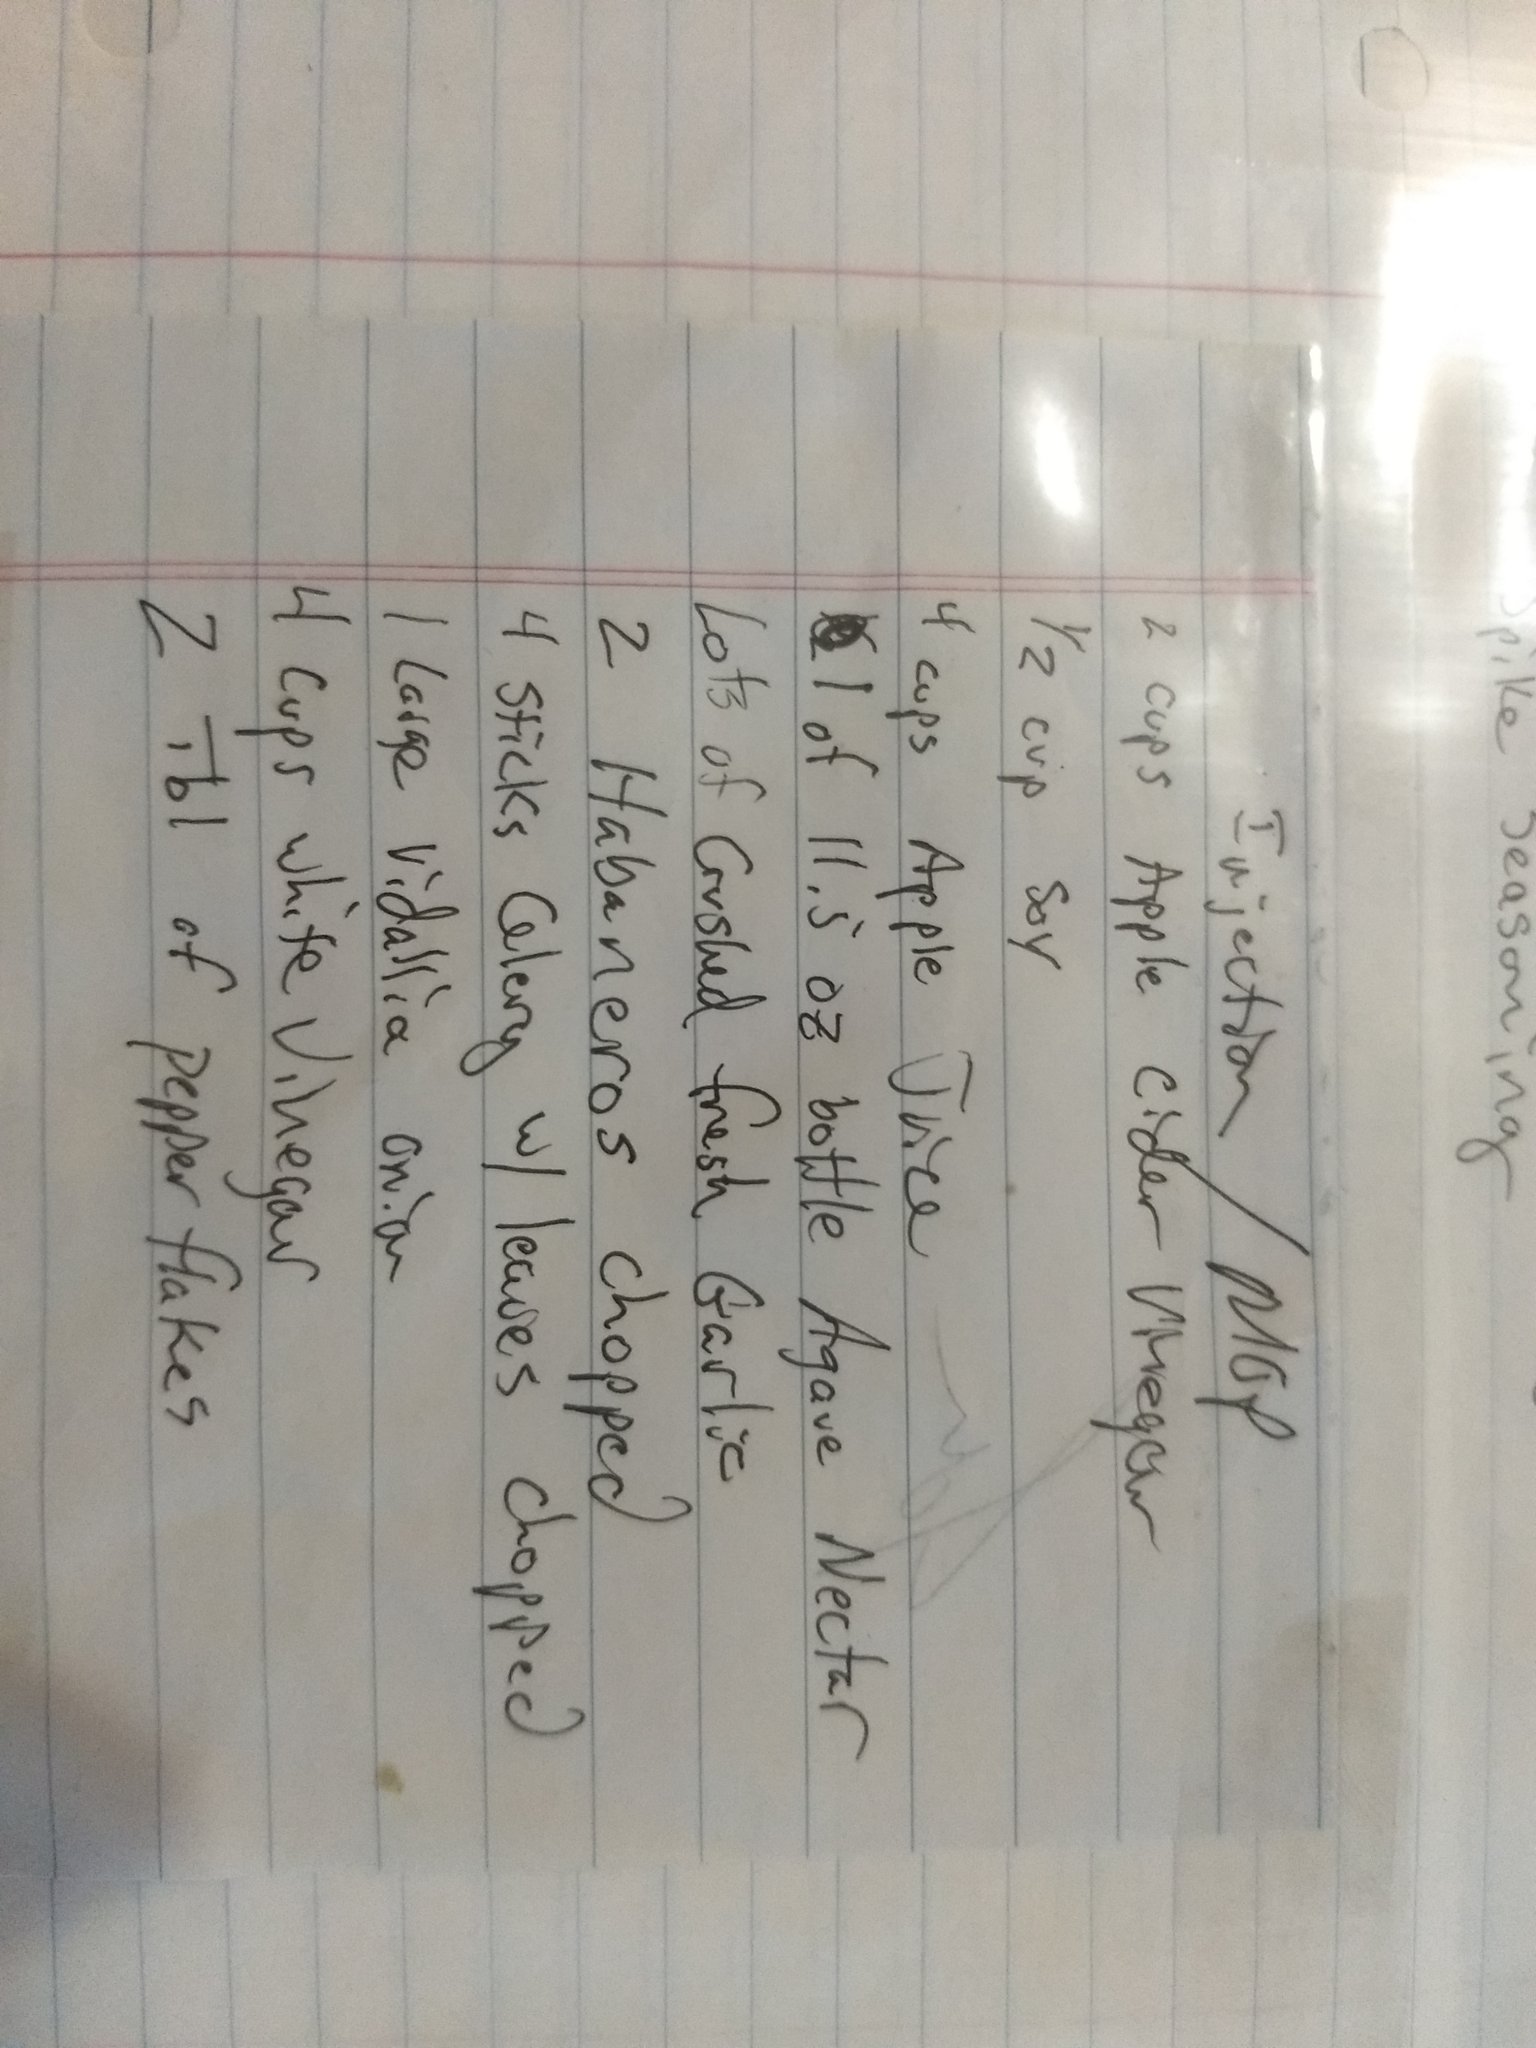 Spike Seasoning
Injection / Mop
2 cups Apple Cider Vinegar
1/2 cup Soy
4 cups Apple Juice
1 of 11.5 oz bottle Agave Nectar
Lots of Crushed fresh Garlic
2 Habaneros chopped
4 sticks Celery w/ leaves chopped
1 Large Vidallia onion
4 Cups white Vinegar
2 Tbl of pepper flakes